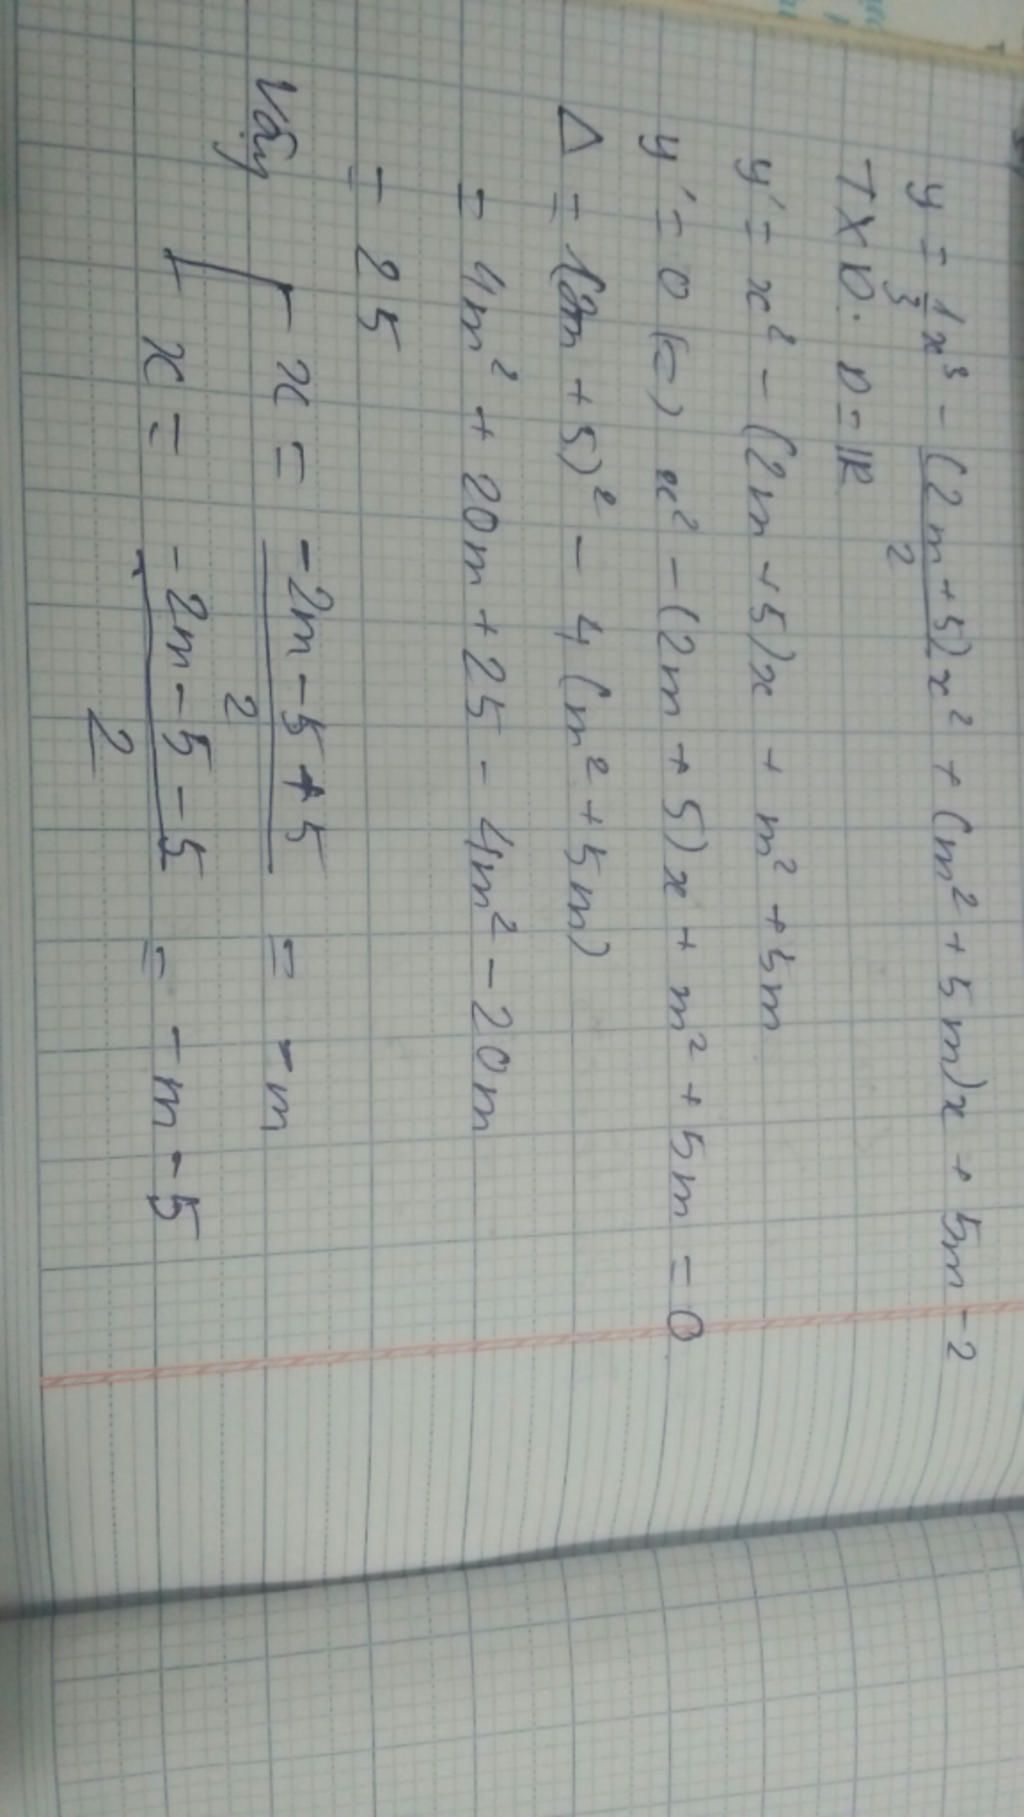 y = 1/3 x³ - (2m+5)/2 x² + (m² + 5m)x + 5m - 2
TXD: D = ℝ
y' = x² - (2m + 5)x + m² + 5m
y' = 0 (=) x² - (2m + 5)x + m² + 5m = 0
Δ = (2m + 5)² - 4(m² + 5m)
= 4m² + 20m + 25 - 4m² - 20m
= 25
Vậy [ x = (-2m - 5 + 5)/2 = -m
x = (-2m - 5 - 5)/2 = -m - 5